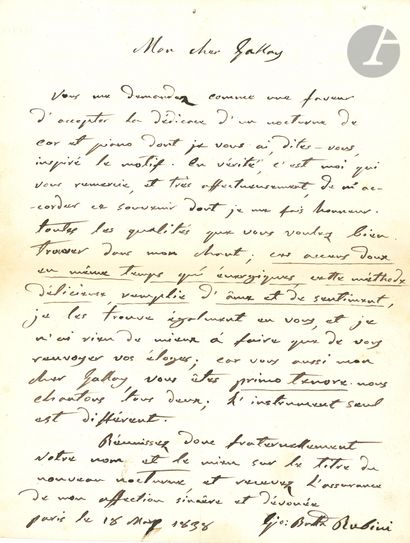 Mon cher Gallay
Vous me demandez comme une faveur
d'accepter la dédicace d'un nocturne de
cor et piano dont je vous ai, dites-vous,
inspiré le motif. En vérité, c'est moi qui
vous remercie, et très affectueusement, de m'ac-
corder ce souvenir dont je me fais honneur.
toutes les qualités que vous voulez bien
trouver dans mon chant; ces accens doux
en même temps qu'énergiques, cette méthode
délicieuse remplie d'âme et de sentiment,
je les trouve également en vous, et je
n'ai rien de mieux à faire que de vous
renvoyer vos éloges; car vous aussi mon
cher Gallay, vous êtes primo tenore. nous
chantons tous deux; l'instrument seul
est différent.
Réunissez donc fraternellement
votre nom et le mien sur le titre du
nouveau nocturne et recevez l'assurance
de mon affection sincère et dévouée
paris le 18 May 1838 Gio: Batta Rubini